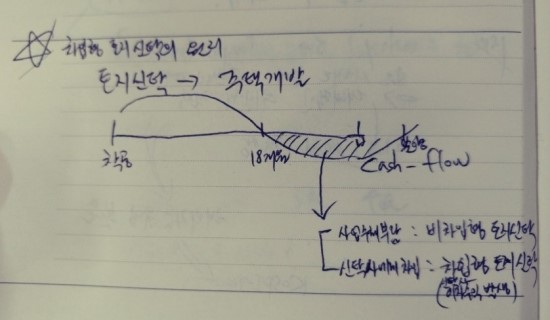 ☆ 차입형 토지신탁의 원리
토지신탁 → 주택개발
착공
18개월
Cash-flow
사업주체부담 : 비차입형 토지신탁
신탁사에게 차입 : 차입형 토지신탁